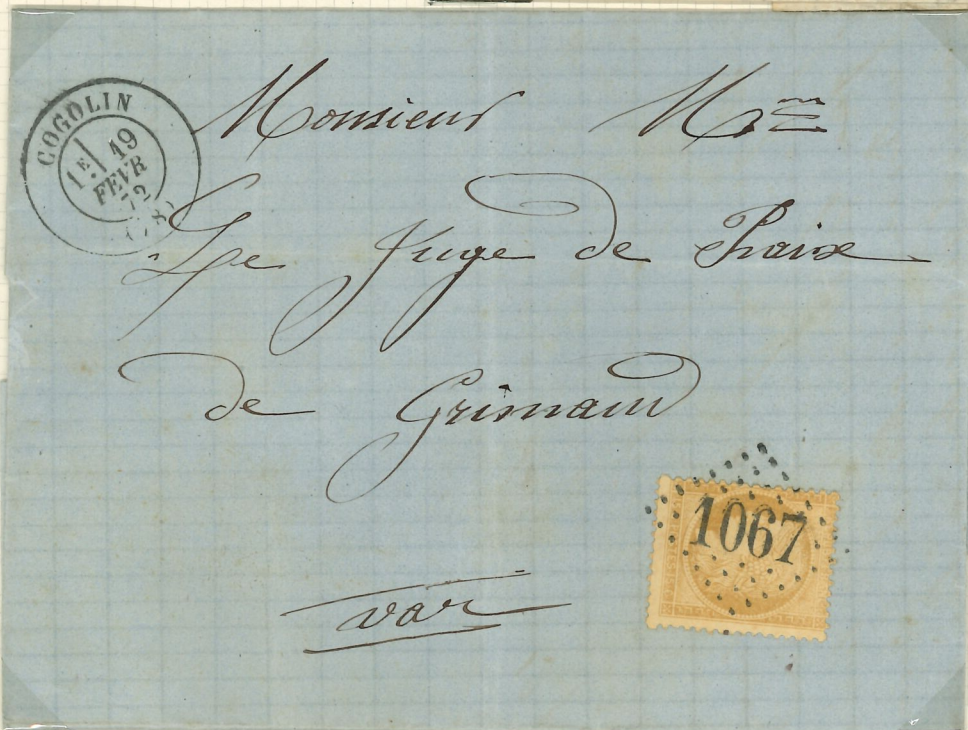 COGOLIN
1E 19
FEVR
72
(78)
Monsieur
Le Juge de Paix
de Grimaud
var
1067